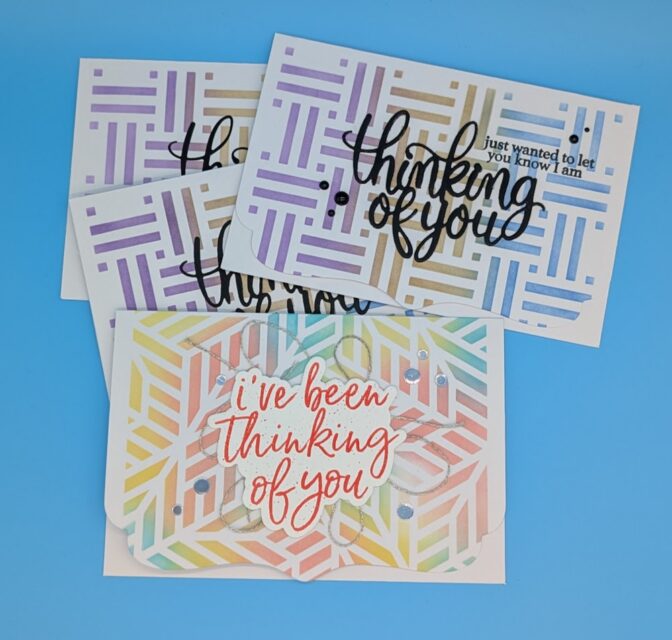 just wanted to let
you know I am
thinking
of you
i've been
thinking
of you